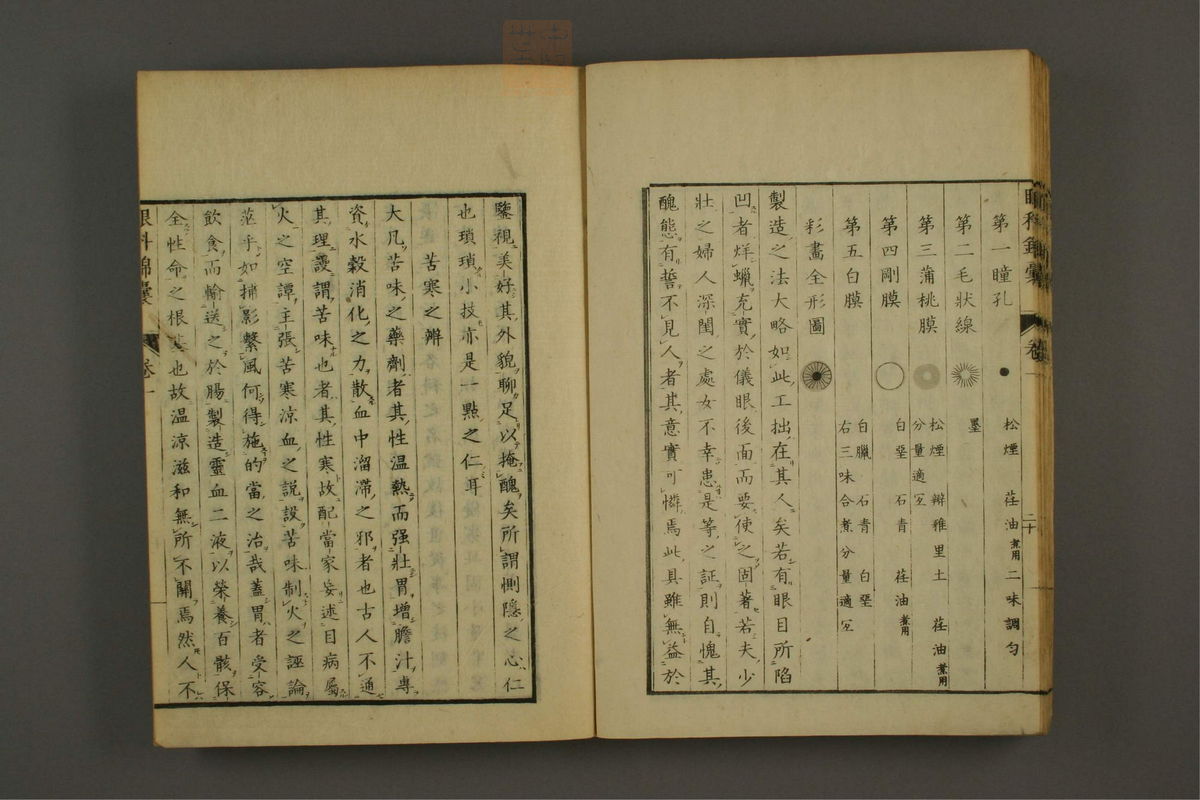 眼科錦囊 卷一 二十
第一瞳孔 松煙 荏油煮用 二味調勻
第二毛狀線 墨
第三蒲桃膜 松煙 辯稚里土 荏油煮用 分量適宜
第四剛膜 白堊 石青 荏油煮用
第五白膜 白臘 石青 白堊 右三味合煮分量適宜
彩畫全形圖
製造之法大略如此工拙在其人矣若有眼目所陷
凹者烊蠟充實於儀眼後面而要使之固著若夫少
壯之婦人深閨之處女不幸患是等之証則自愧其
醜態有誓不見人者其意實可憐焉此具雖無益於
鑒視美好其外貌聊足以掩醜矣所謂惻隱之心仁
也瑣瑣小技亦是一點之仁耳
苦寒之辨
大凡苦味之藥劑者其性溫熱而强壯胃增膽汁專
資水穀消化之力散血中溜滯之邪者也古人不通
其理謾謂苦味也者其性寒故配當家妄述目病屬
火之空譚主張苦寒涼血之說設苦味制火之誣論
茫乎如捕影繫風何得施的當之治哉蓋胃者受容
飲食而輸送之於腸製造靈血二液以榮養百骸保
全性命之根基也故温涼滋和無所不關焉然人不
眼科錦囊 卷一